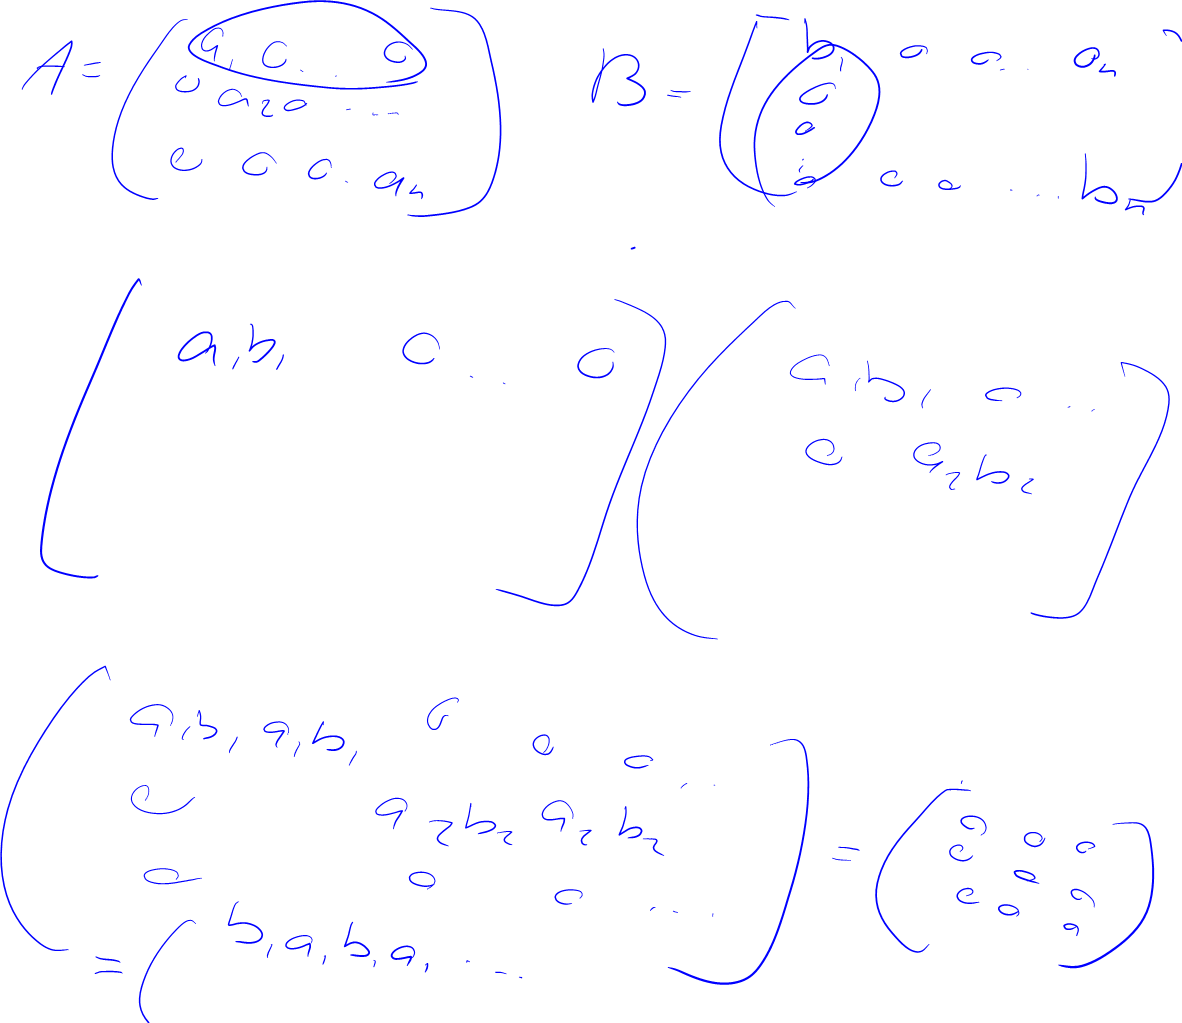 A = ( a₁ 0 . . . 0   B = [ b₁ 0 0 . . . 0n
0 a₂ 0 . . . .   0
0
0 0 0 . aₙ )   0 0 0 . . . bₙ ]
[ a₁b₁ 0 . . . 0 ] ( a₁b₁ 0 . . .
0 a₂b₂ ]
( a₁b₁ a₁b₁ 0 0 0 . . .
0 a₂b₂ a₂b₂ ] = ( 0 0 0
0 0 0 . . . .   0 0
0 0 0
0 ]
= ( b₁a₁b₁a₁ . . . .